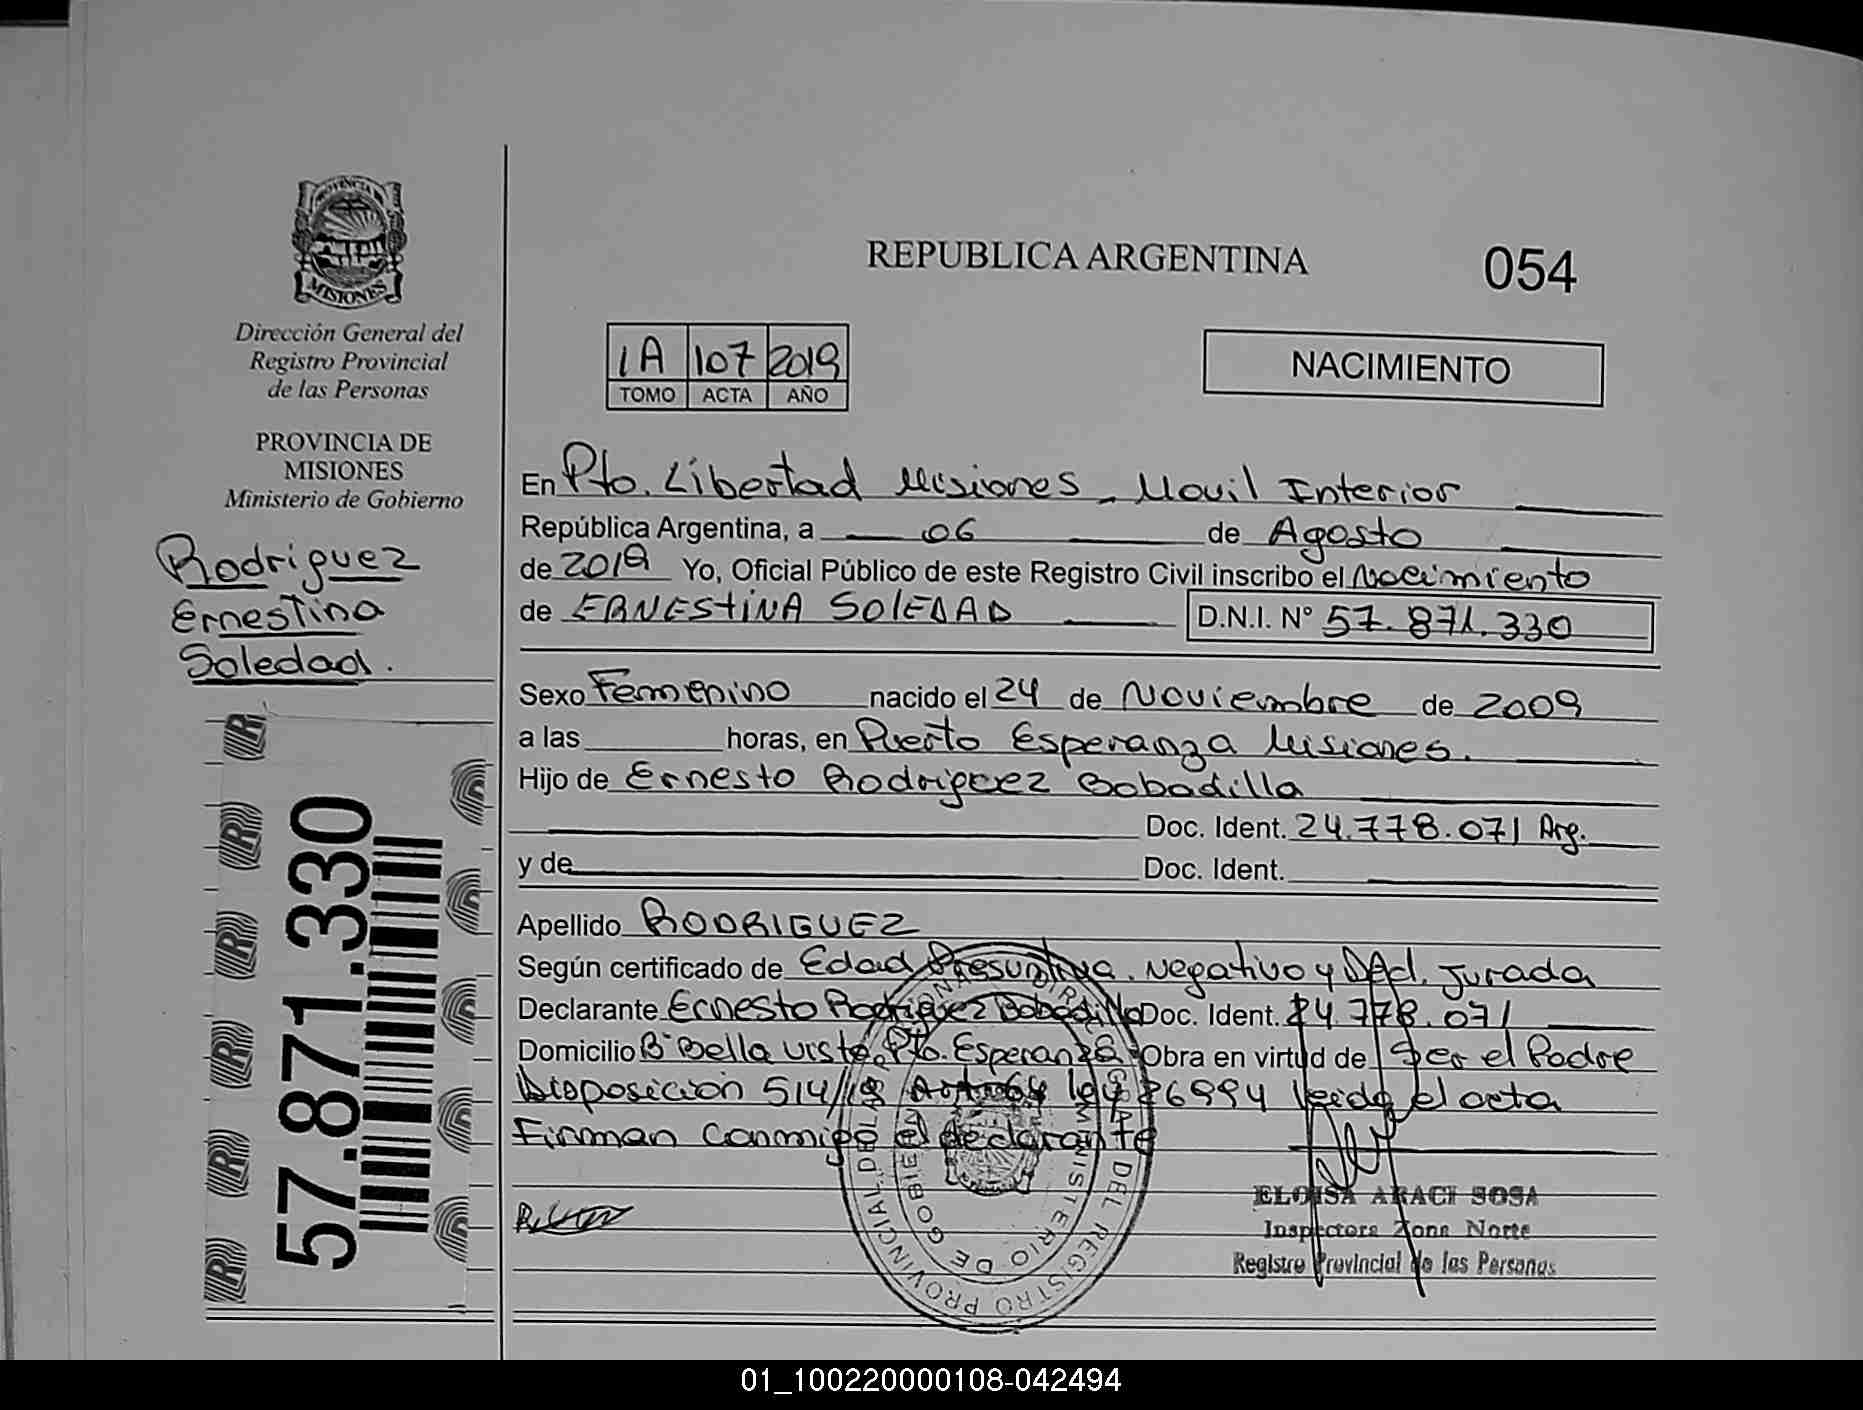 PROVINCIA DE
MISIONES
Dirección General del
Registro Provincial
de las Personas
PROVINCIA DE
MISIONES
Ministerio de Gobierno
Rodriguez
Ernestina
Soledad.
57.871.330
REPUBLICA ARGENTINA
054
1A 107 2019
TOMO ACTA AÑO
NACIMIENTO
En Pto. Libertad Misiones - Movil Interior
República Argentina, a 06 de Agosto
de 2019 Yo, Oficial Público de este Registro Civil inscribo el Nacimiento
de ERNESTINA SOLEDAD D.N.I. N° 57.871.330
Sexo Femenino nacido el 24 de Noviembre de 2009
a las horas, en Puerto Esperanza Misiones.
Hijo de Ernesto Rodriguez Bobadilla
Doc. Ident. 24.778.071 Arg.
y de Doc. Ident.
Apellido RODRIGUEZ
Según certificado de Edad Presuntiva. Negativo y Jurada
Declarante Ernesto Rodriguez Bobadilla Doc. Ident. 24.778.071
Domicilio B° Bella vista. Pto. Esperanza Obra en virtud de Ser el Padre
Disposición 514/18 Art 64 ley 26994 leida el acta
Firman conmigo el declarante
DIRECCION GENERAL DEL REGISTRO PROVINCIAL DE LAS PERSONAS
MINISTERIO DE GOBIERNO
ELOISA ARACI SOSA
Inspectora Zona Norte
Registro Provincial de las Personas
01_100220000108-042494